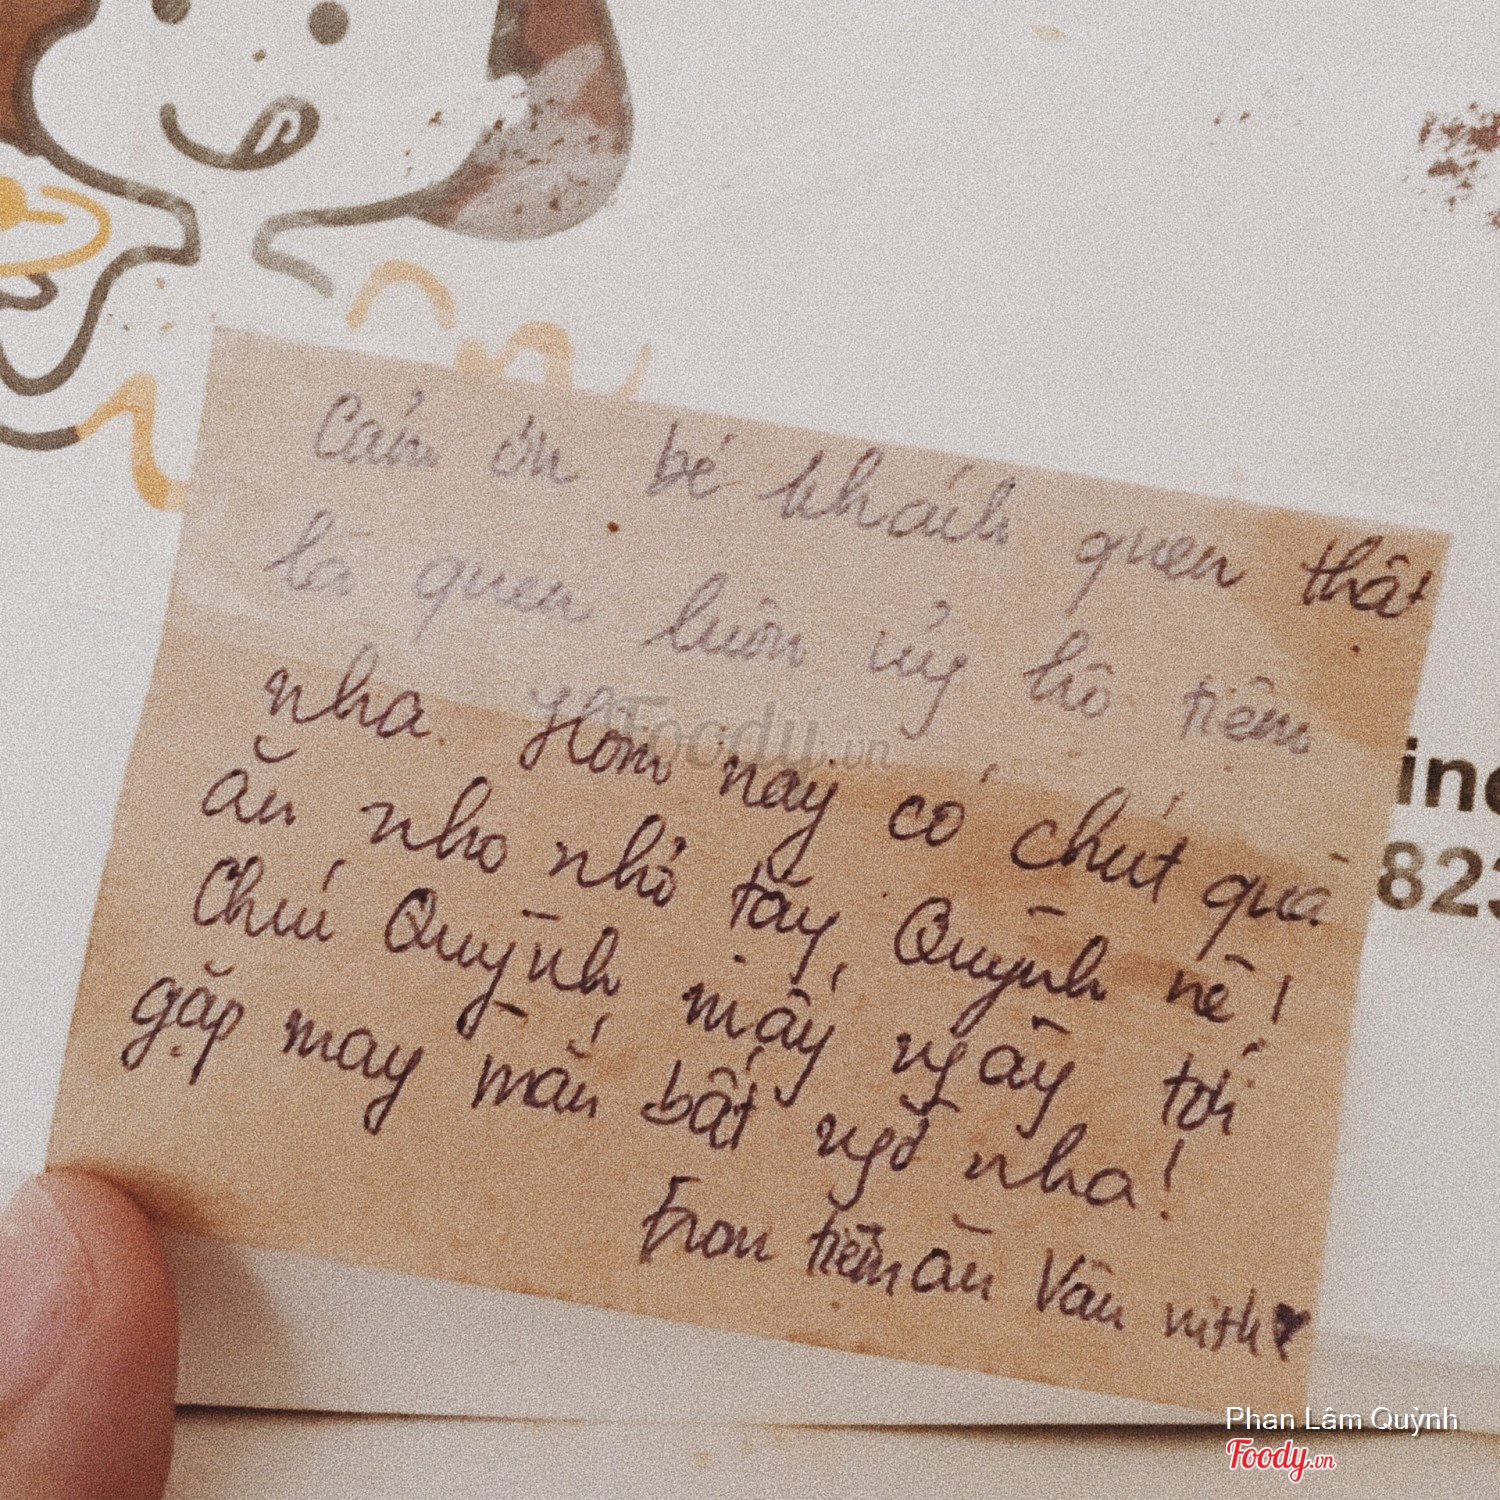 Cảm ơn bé khách quen thật
là quen luôn ủng hộ tiệm
nha. Hôm nay có chút quà
ăn nho nhỏ tặng Quỳnh nè!
Chúc Quỳnh mấy ngày tới
gặp may mắn bất ngờ nha!
From tiệm ăn Vân
Foody.vn
ine
823
Phan Lâm Quỳnh
Foody.vn